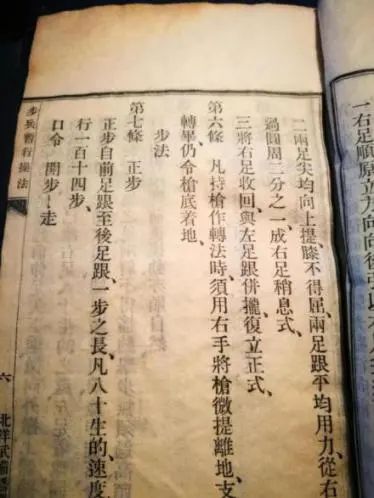 一右足順原立方向向後
二兩足尖均向上提、膝不得屈、兩足跟平均用力、從右
過圓周三分之一、成右足稍息式、
三將右足收回、與左足跟併攏、復立正式、
第六條 凡持槍作轉法時、須用右手將槍微提離地、支
轉畢、仍令槍底着地、
步法
第七條 正步
正步自前足跟至後足跟、一步之長、凡八十生的、速度
行一百十四步、
口令 開步－走
步兵暫行操法
六
北洋武備